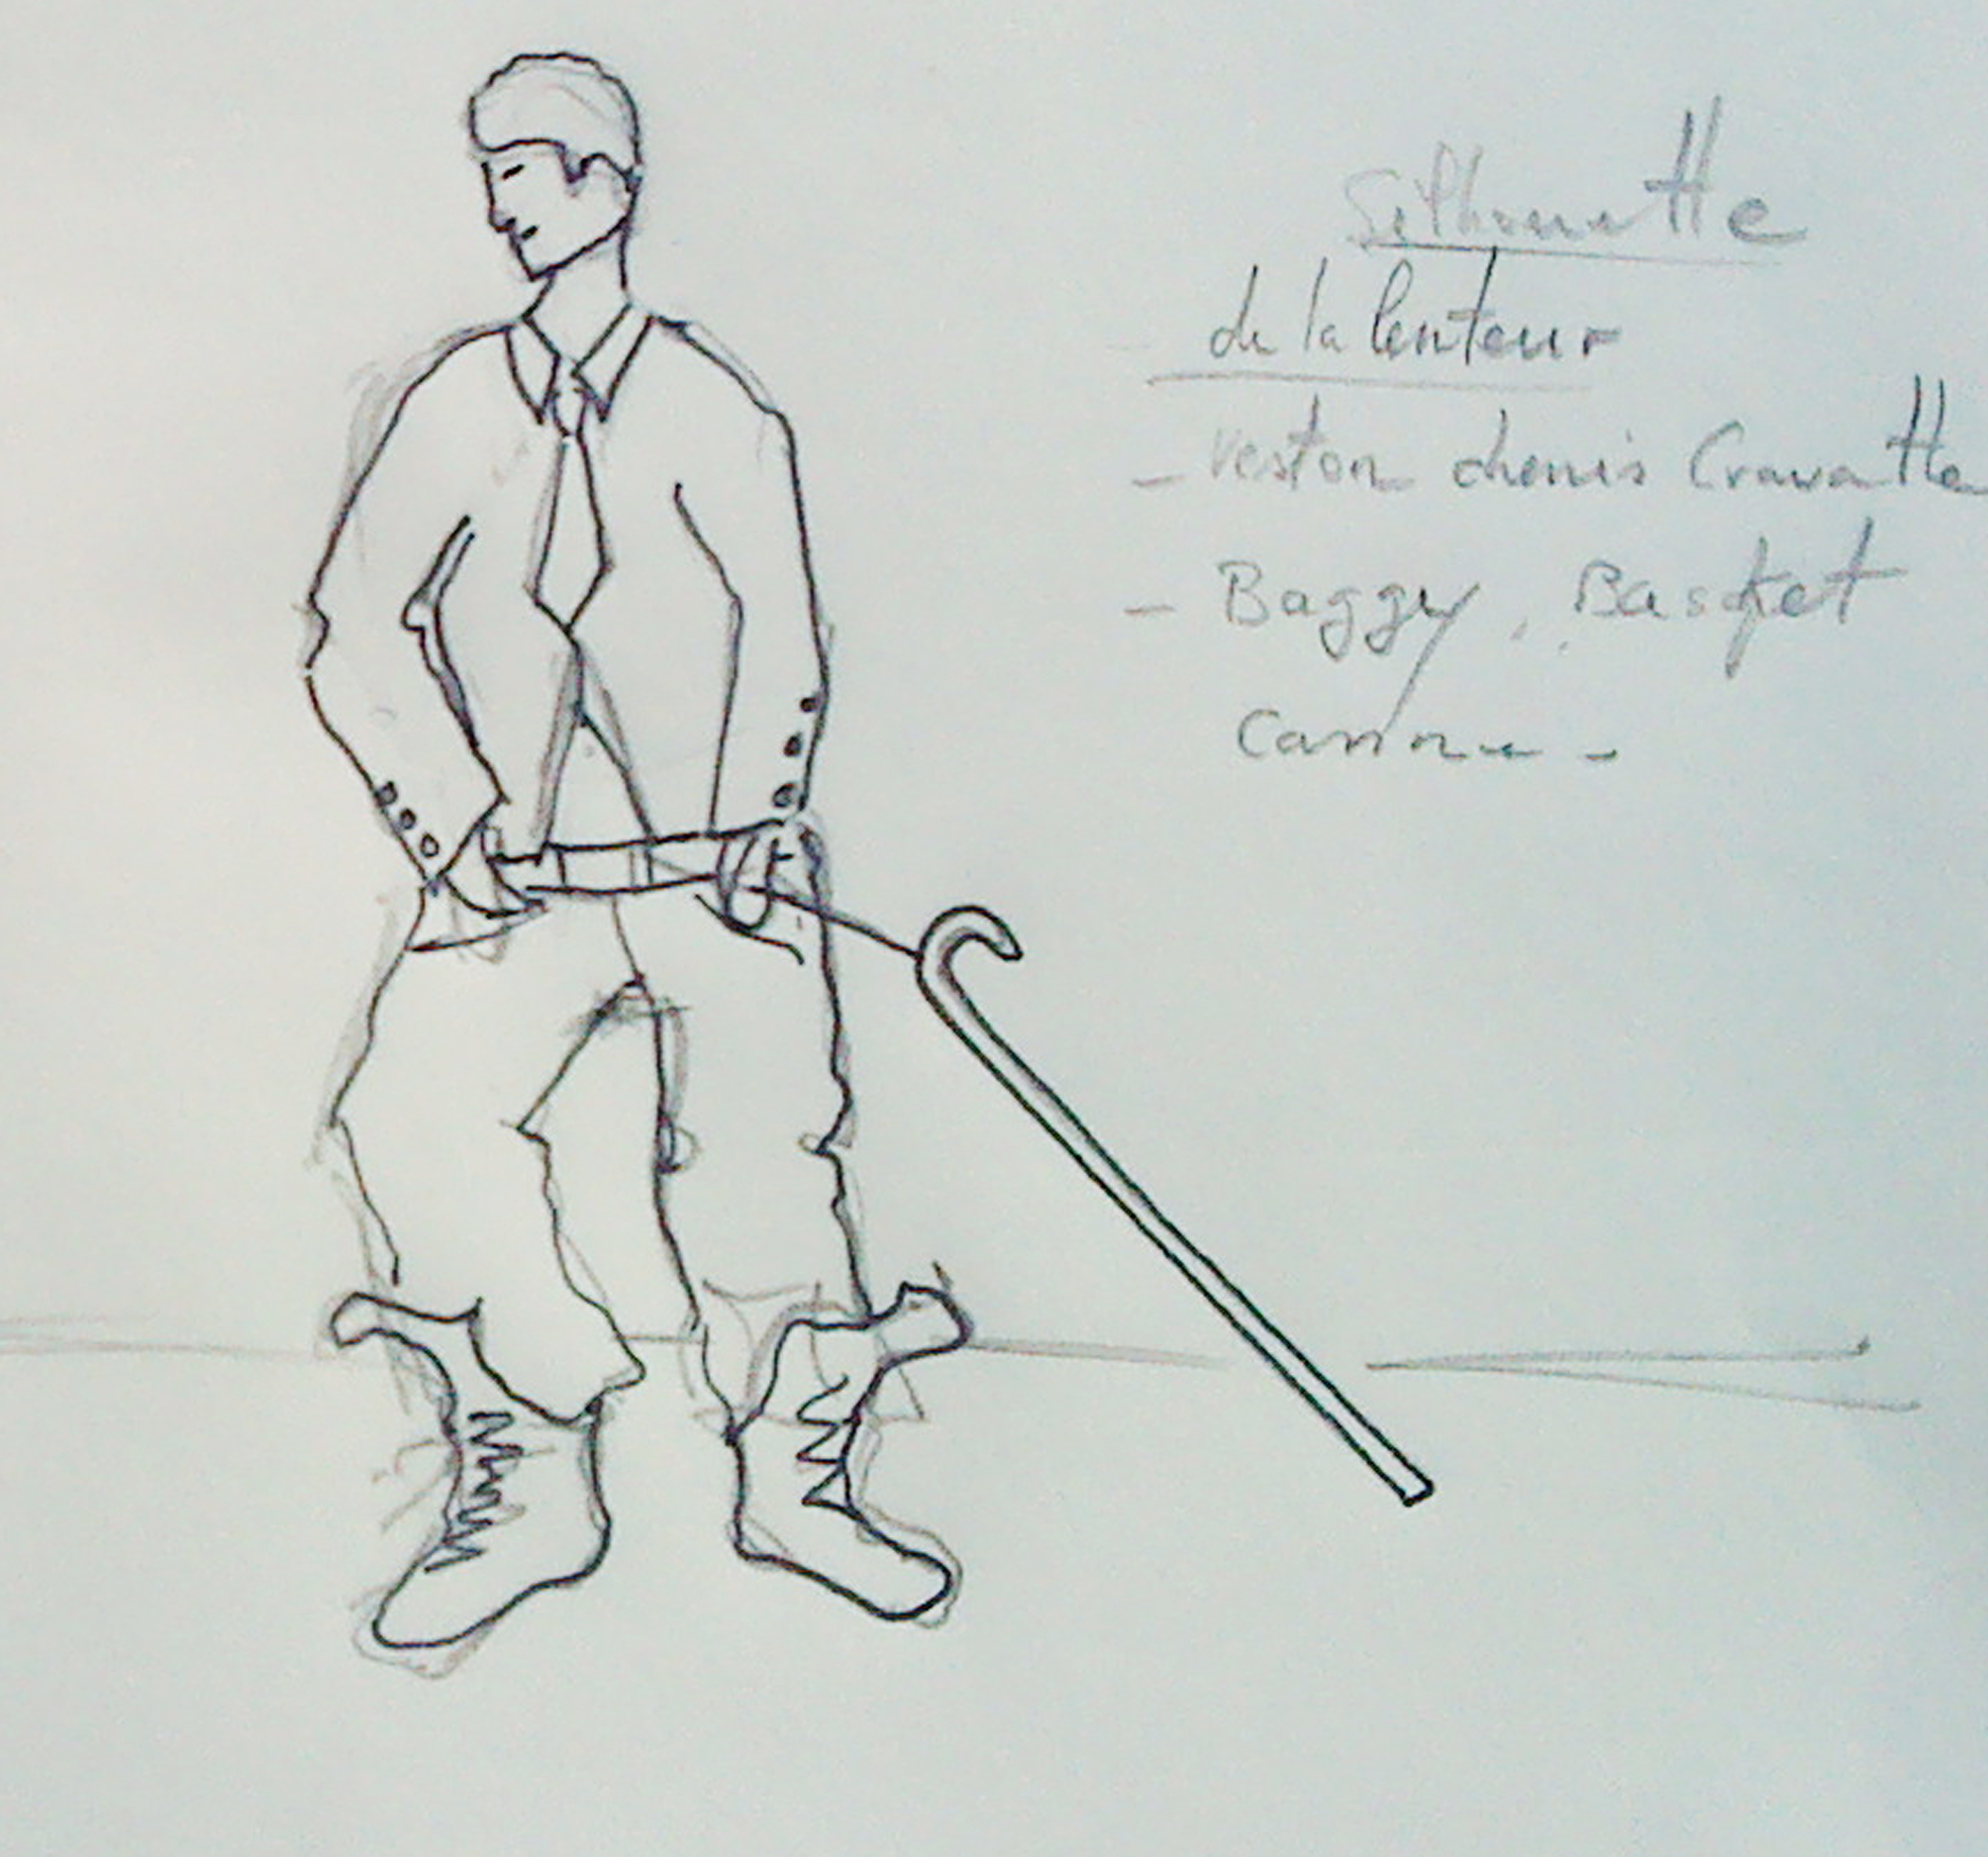 Silhouette
de la lenteur
- veston chemis Cravatte
- Baggy, Basket
Canne -